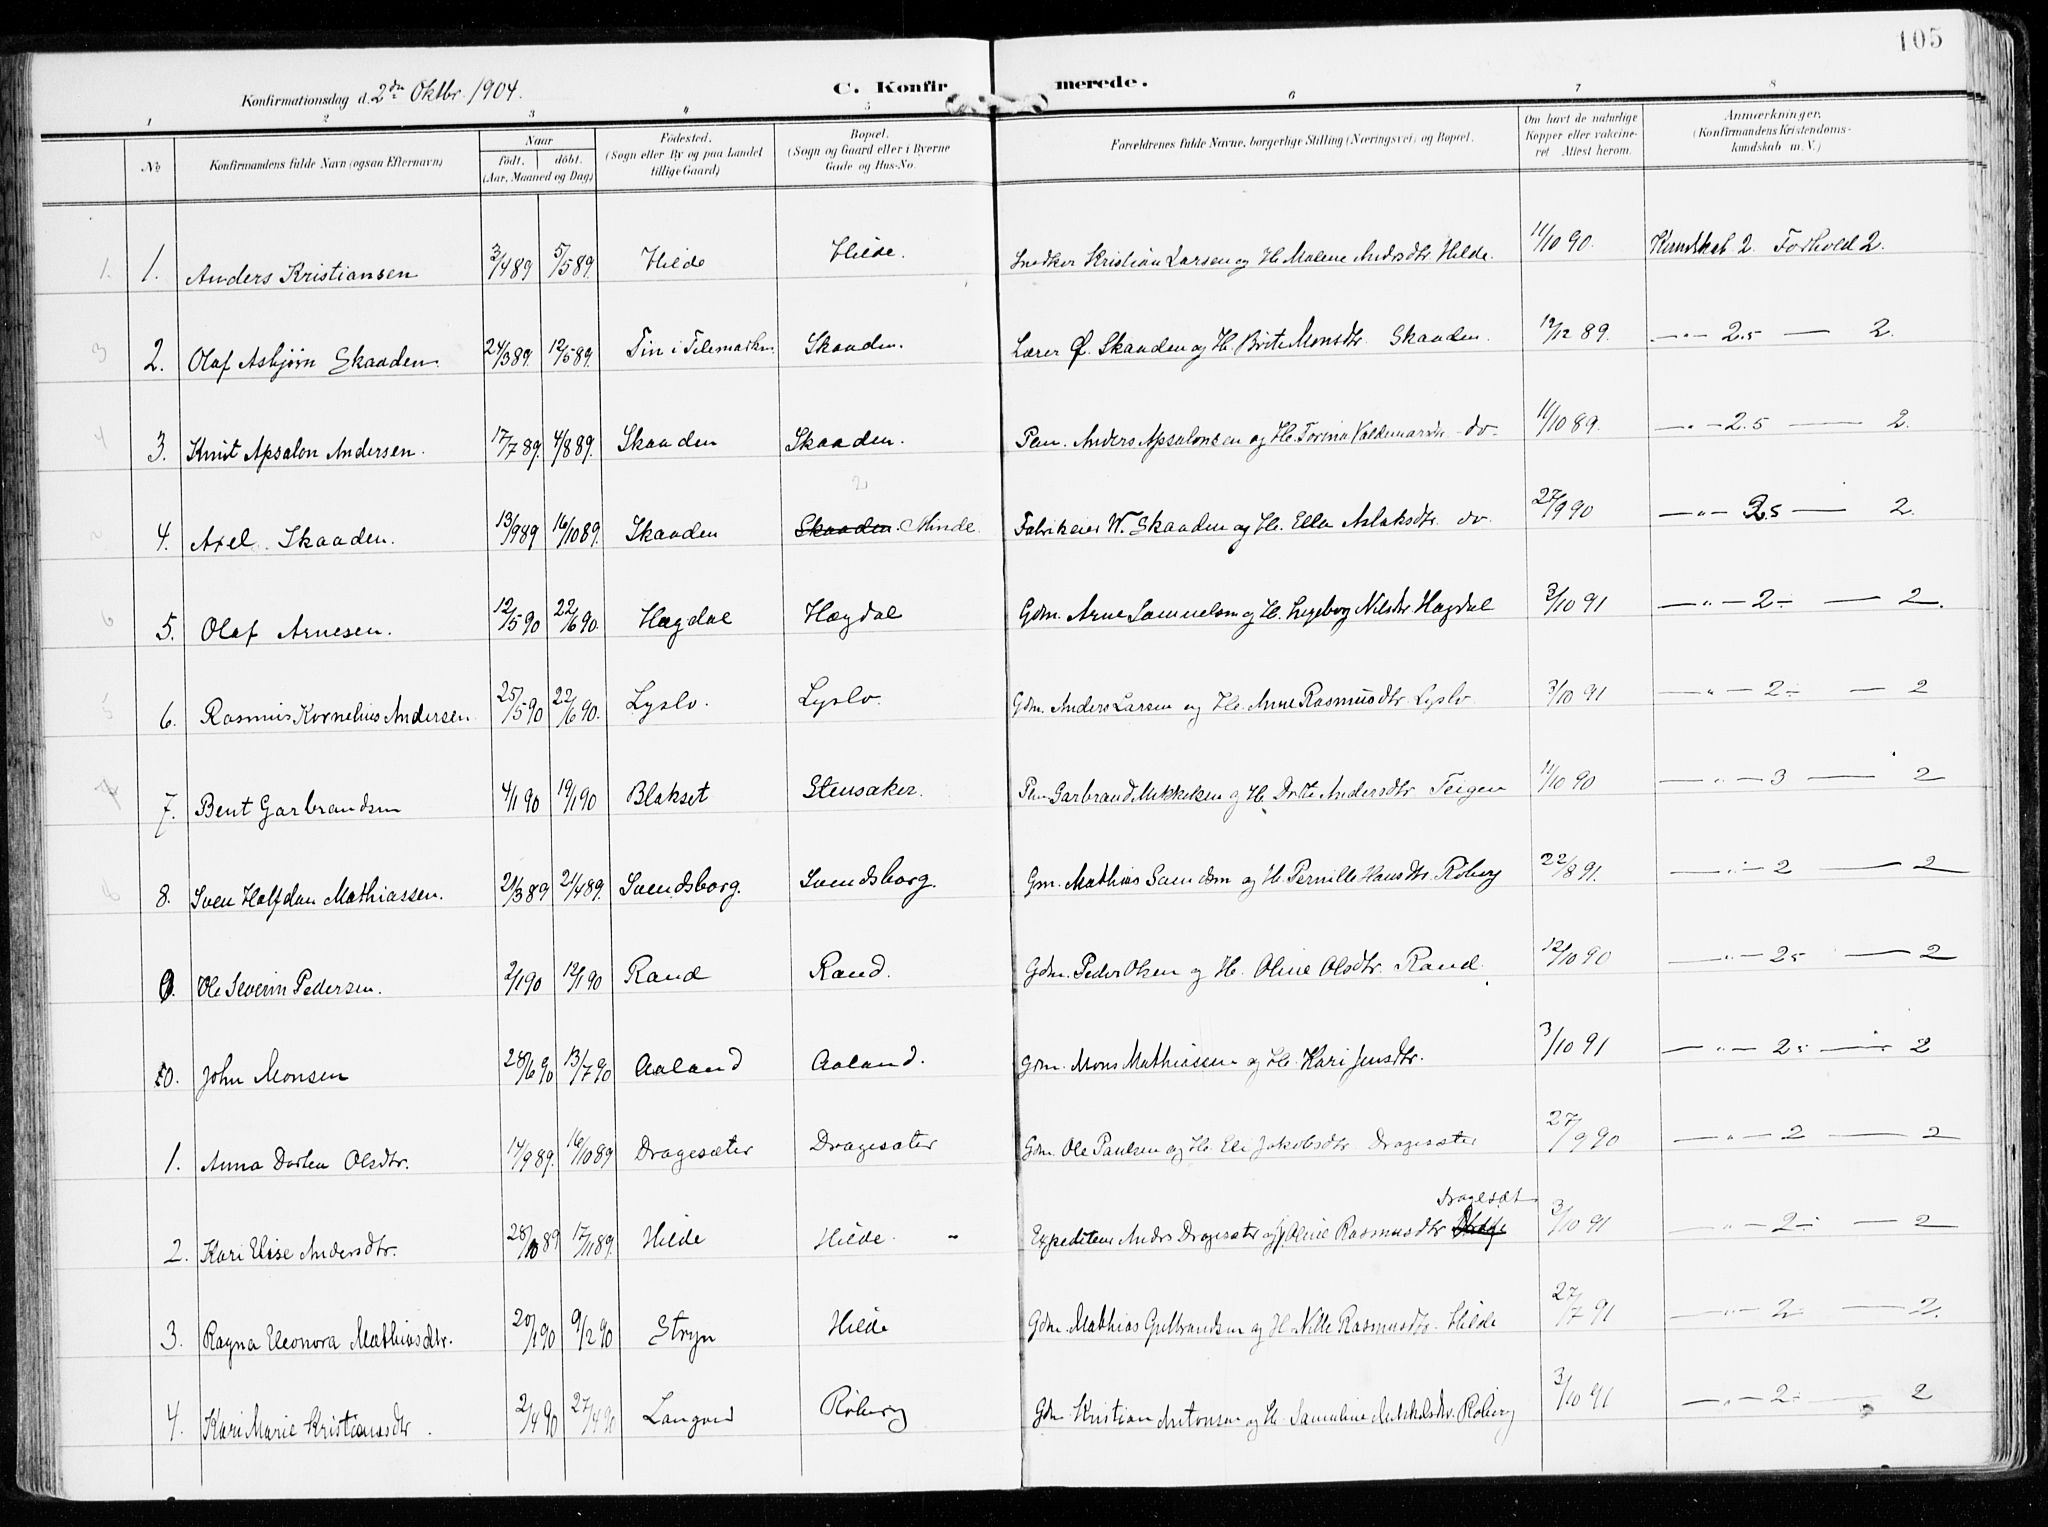 105
Konfirmationsdag d. 2den Oktbr. 1904.
C. Konfirmerede.
1 2 3 4 5 6 7 8
No
Konfirmandens fulde Navn (ogsaa Efternavn)
Naar
født. døbt.
(Aar, Maaned og Dag)
Fødested.
(Sogn eller By og paa Landet
tillige Gaard)
Bopæl.
(Sogn og Gaard eller i Byerne
Gade og Hus-No.
Forældrenes fulde Navne, borgerlige Stilling (Næringsvei) og Bopæl.
Om havt de naturlige
Kopper eller vakcineret
Attest herom.
Anmærkninger.
(Konfirmandens Kristendomskundskab
m. V.)
1 1. Anders Kristiansen 3/4 89 5/5 89. Hilde Hilde. Snedker Kristian Larsen og H. Malene Andrsdtr. Hilde. 11/10 90. Kundskab 2. Forhold 2.
3 2. Olaf Asbjørn Skaaden. 24/3 89. 12/5 89. Tin i Telemarken Skaaden. Lærer Ø. Skaaden og H. Brite Monsdtr. Skaaden. 19/12 89. — " — 2.5 — 2.
4 3. Knut Apsalon Andersen. 17/7 89. 4/8 89. Skaaden Skaaden. Pan. Anders Apsalonsen og H. Torina Valdemarsdtr do. 11/10 89. — " — 2.5 — 2.
2 4. Axel Skaaden. 13/9 89 16/10 89. Skaaden Skaaden. Minde. 2 Fabrikeier W. Skaaden og H. Ella Aslaksdtr. do. 27/9 90 — " — 2.5 — 2.
6 5. Olaf Arnesen. 12/5 90 22/6 90. Hægdal Hægdal Gdm. Arne Samuelsen og H. Ingeborg Nilsdtr. Hægdal 3/10 91 — " — 2 — 2.
5 6. Rasmus Kornelius Andersen. 25/5 90 22/6 90. Lyslo. Lyslo. Gdm. Anders Larsen og H. Anne Rasmusdtr. Lyslo. 3/10 91 — " — 2 — 2
7 7. Bent Garbrandsen 4/1 90 19/1 90 Blakset Stensaker. Pan Garbrand Mikkelsen og H. Drite Andersdtr. Teigen 11/10 90 — " — 3 — 2
8 8. Sven Halfdan Mathiassen. 21/3 89 21/4 89. Svendsborg. Svendsborg. Gm. Mathias Svendsen og H. Pernille Hansdtr. Røberg 22/8 91. — " — 2 — 2
9. Ole Severin Pedersen. 2/1 90 12/1 90 Rand Rand. Gdm. Peder Olsen og H. Oline Olsdtr. Rand. 12/10 90 — " — 2.5 — 2
10. John Monsen 28/6 90 13/7 90 Aaland Aaland. Gdm. Mons Mathiassen og H. Kari Jensdtr. 3/10 91 — " — 2 — 2
1. Anna Dorthea Olsdtr. 14/9 89. 16/10 89 Dragesæter Dragesæter Gdm. Ole Paulsen og H. Eli Jakobsdtr Dragesæter 27/9 90 — " — 2 — 2
2. Kari Elise Andersdtr. 28/10 89 17/11 89. Hilde Hilde. " Expeditør Anders Dragesæter og H. Oline Rasmusdtr Dragesæt 3/10 91 — " — 2 — 2
3. Ragna Eleonora Mathiasdtr. 20/1 90 9/2 90 Stryn Hilde Gdm. Mathias Gulbrandsen og H. Nille Rasmusdtr. Hilde 27/7 91 — " — 2 — 2.
4. Kari Marie Kristiansdtr. 2/4 90 27/4 90 Langvin Røberg Gdm Kristian Antonsen og H. Samuline Mikkelsdtr. Røberg 3/10 91 — " — 2 — 2